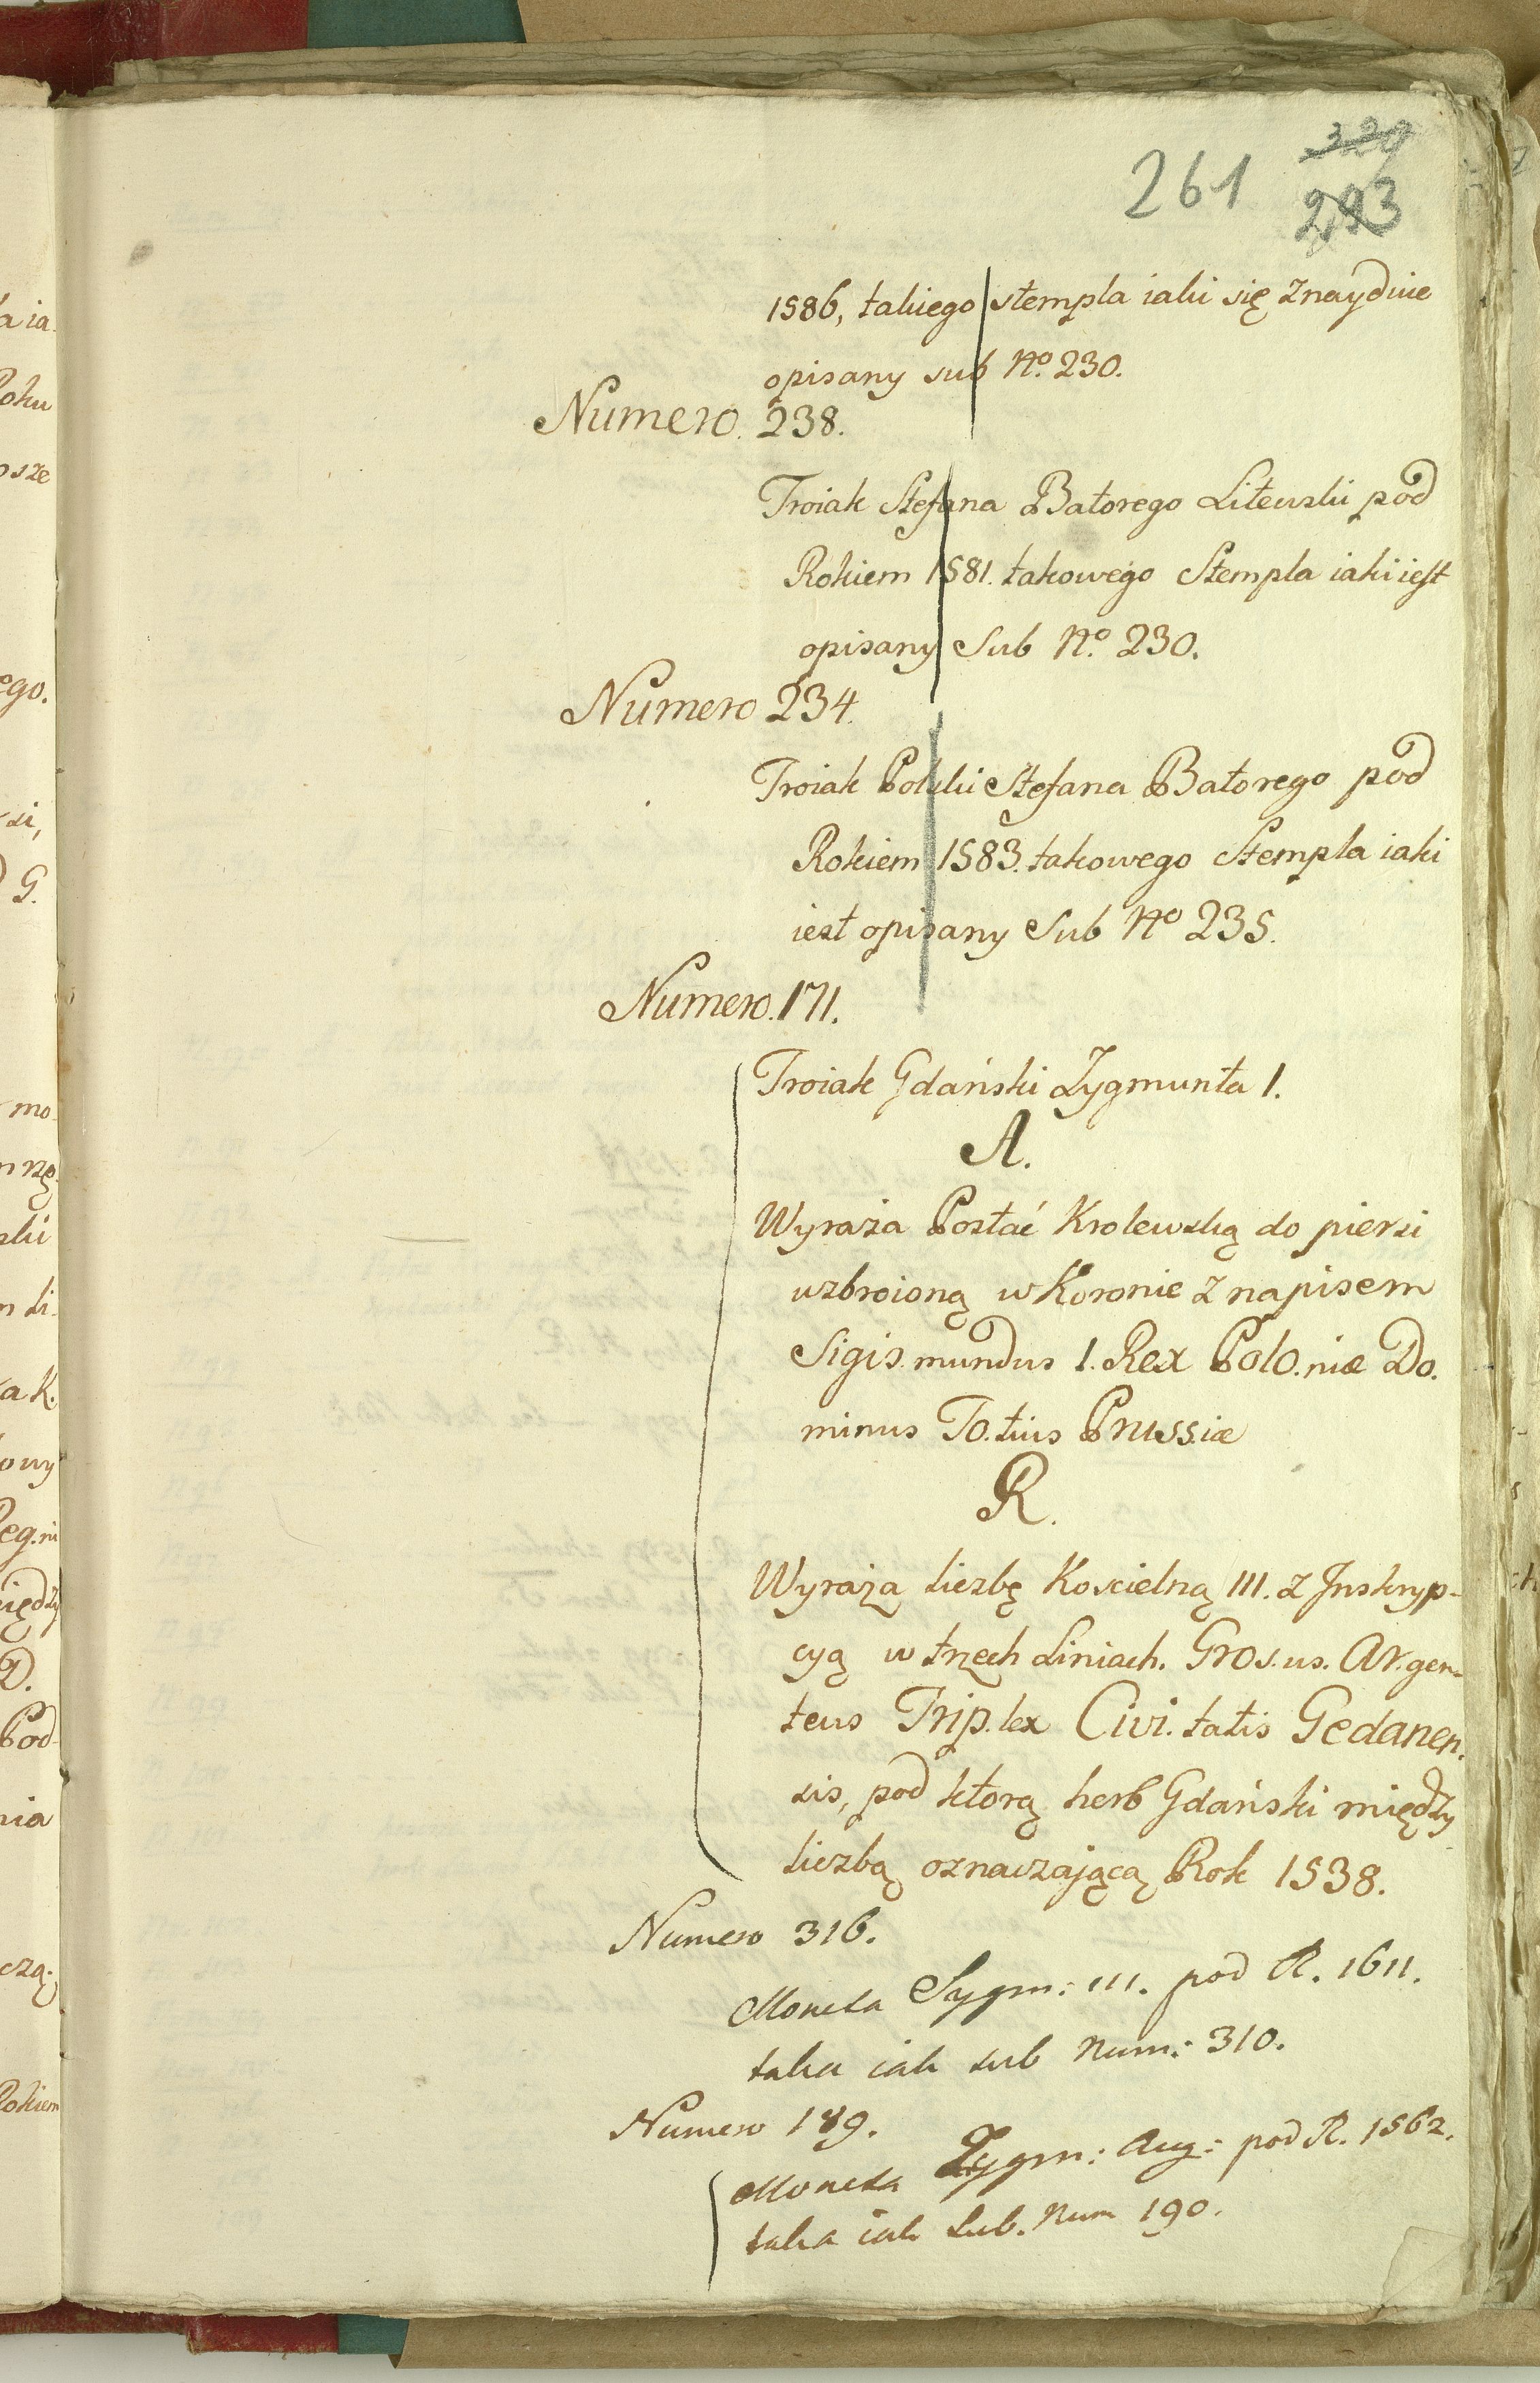 261 329
293
1586, takiego stempla iaki się znayduie
opisany sub No. 230.
Numero. 238.
Troiak Stefana Batorego Litewski pod
Rokiem 1581. takowego Stempla iaki iest
opisany Sub No. 230.
Numero 234.
Troiak Polski Stefana Batorego pod
Rokiem 1583. takowego Stempla iaki
iest opisany Sub No 235.
Numero. 171.
Troiak Gdański Zygmunta 1.
A.
Wyraża Postać Krolewską do piersi
uzbroioną w Koronie z napisem
Sigis.mundus 1. Rex Polo.niæ Do.
minus To.tius Pruss.iæ
R.
Wyraża liczbę Koscielną III. z Inskryp-
cyą w trzech Liniach. Gros.us. Ar.gen-
teus Trip.lex Civi.tatis Gedanen.
sis, pod ktorą herb Gdański między
liczbą oznaczającą Rok 1538.
Numero 316.
Moneta Sygm: III. pod R. 1611.
taka iak sub Num: 310.
Numero 189.
Moneta Zygm: Aug: pod R. 1562.
taka iak Sub. Num 190.